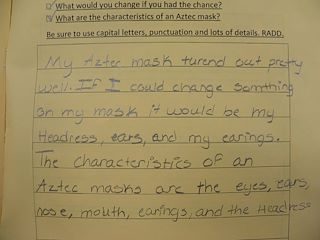 What would you change if you had the chance?
What are the characteristics of an Aztec mask?
Be sure to use capital letters, punctuation and lots of details. RADD.
My Aztec mask turend out pretty
well. If I could change somthing
on my mask it would be my
Headress, ears, and my earings.
The characteristics of an
Aztec masks are the eyes, ears,
nose, mouth, earings, and the Headress